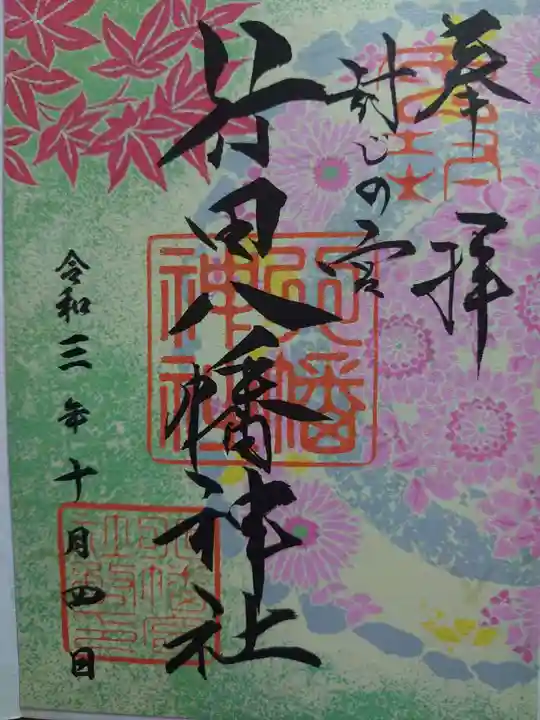 奉拝
封じの宮
行田八幡神社
八幡
神社
令和三年十月四日